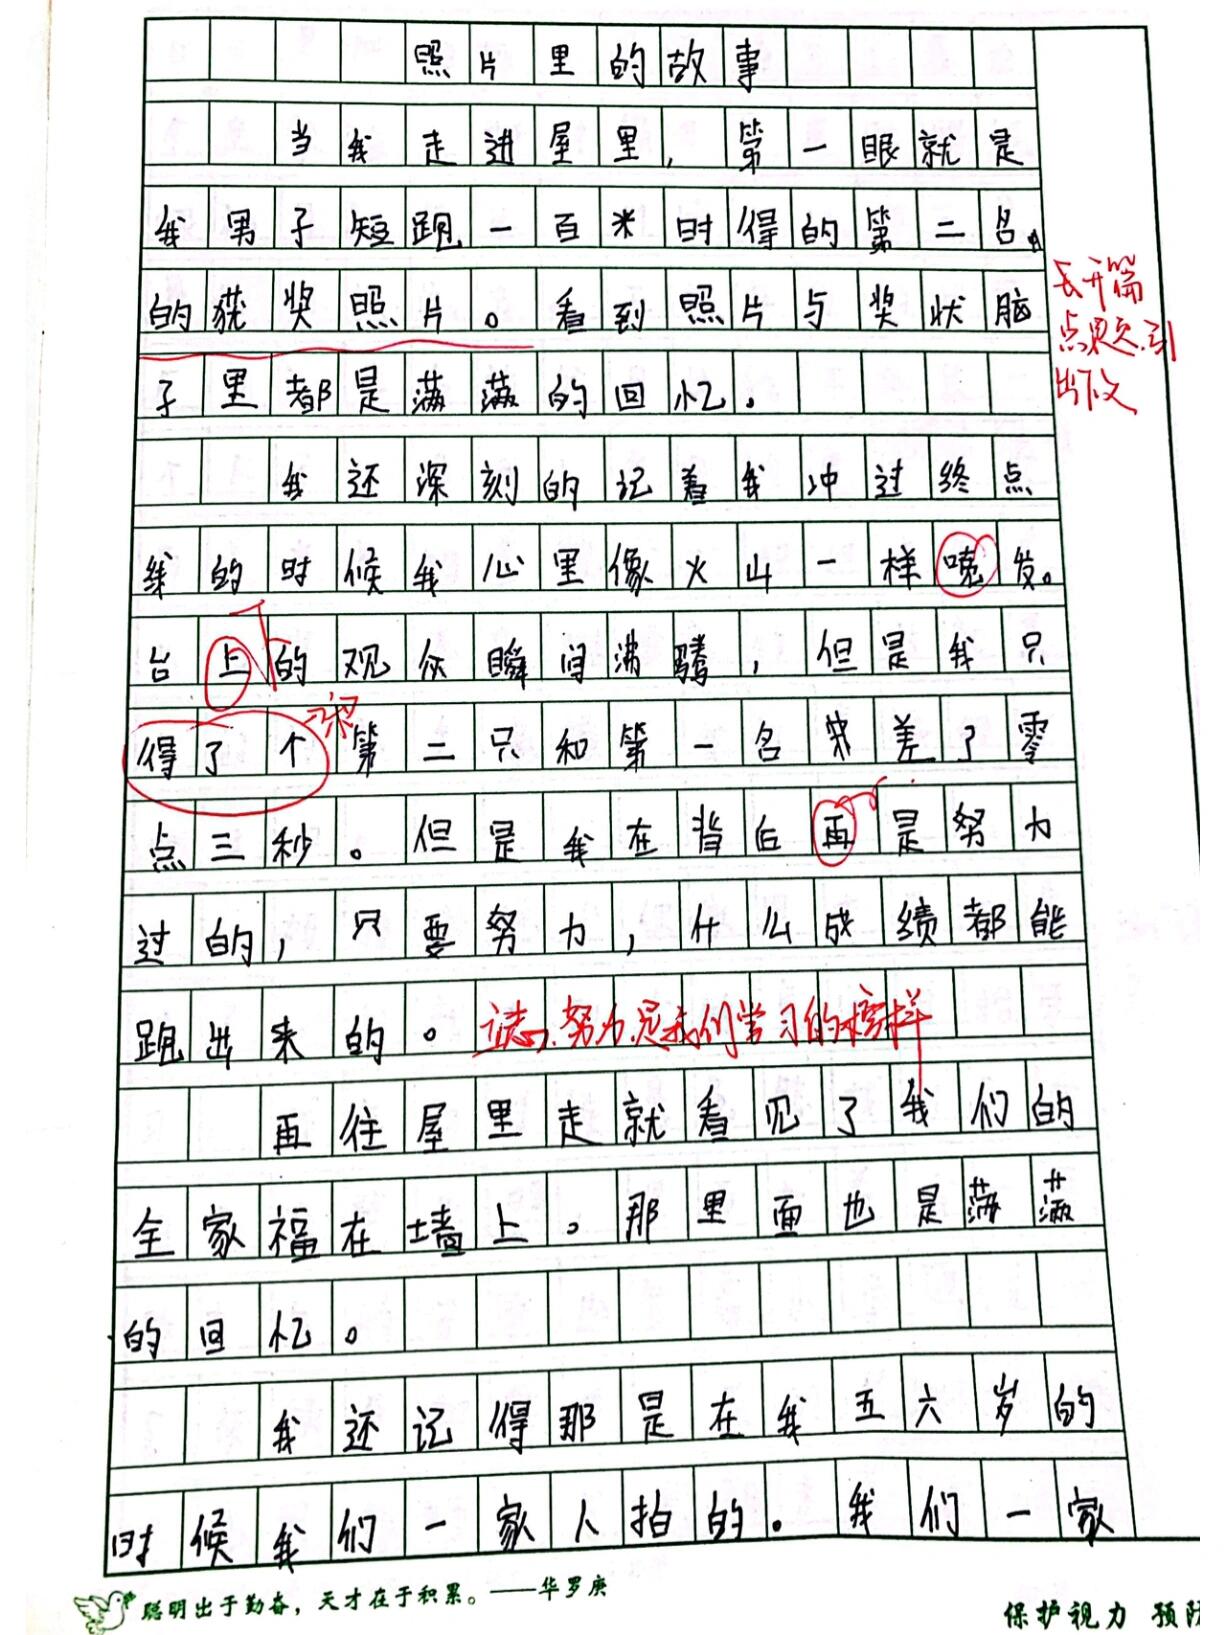 照片里的故事
当我走进屋里，第一眼就是
我男子短跑一百米时得的第二名
的获奖照片。看到照片与奖状脑
子里都是满满的回忆。
开篇
点题
出下文
我还深刻的记着我冲过终点
线的时候我心里像火山一样喷发。
台上的观众瞬间沸腾，但是我只
下
得了个第二只和第一名差了零
点三秒。但是我在背后再是努力
过的，只要努力，什么成绩都能
跑出来的。努力是我们学习的榜样
再往屋里走就看见了我们的
全家福在墙上。那里面也是满满
的回忆。
我还记得那是在我五六岁的
时候我们一家人拍的。我们一家
聪明出于勤奋，天才在于积累。——华罗庚
保护视力 预防